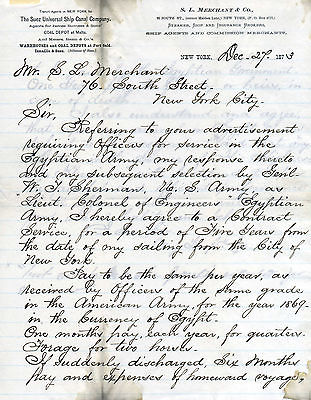 Transit Agent in NEW YORK for
The Suez Universal Ship Canal Company,
COAL DEPOT at Malta.
WAREHOUSES and COAL DEPOTS at Port Said.
S. L. MERCHANT & CO.
76 SOUTH ST., (corner Maiden Lane) NEW YORK, (P. O. Box
STEAMER, SHIP AND INSURANCE BROKERS,
SHIP AGENTS AND COMMISSION MERCHANTS.
NEW YORK, Dec. 27, 1873
Mr. S. L. Merchant
76. South Street.
New York City.
Sir.
Referring to your advertisement
requiring Officers for service in the
Egyptian Army, my response thereto
and my subsequent selection by Gen'l
W. T. Sherman, U. S. Army, as
Lieut. Colonel of Engineers Egyptian
Army, I hereby agree to a Contract
Service, for a period of Five Years from
the date of my sailing from the City of
New York.
Pay to be the same per year, as
received by Officers of the same grade
in the American Army, for the year 1869
in the Currency of Egypt.
One months pay, each year, for quarters.
Forage for two horses.
If suddenly discharged, Six Months
pay and expenses of homeward voyage,